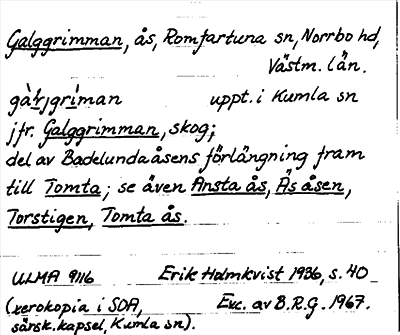 Galggrimman, ås, Romfartuna sn, Norrbo hd,
Västm. län.
gàłjgrìman uppt. i Kumla sn
jfr. Galggrimman, skog;
del av Badelundaåsens förlängning fram
till Tomta; se även Ansta ås, Äs åsen,
Torstigen, Tomta ås.
ULMA 9116 Erik Holmkvist 1936, s. 40
(xerokopia i SOA, Exc. av B.R.G. 1967.
särsk. kapsel, Kumla sn).